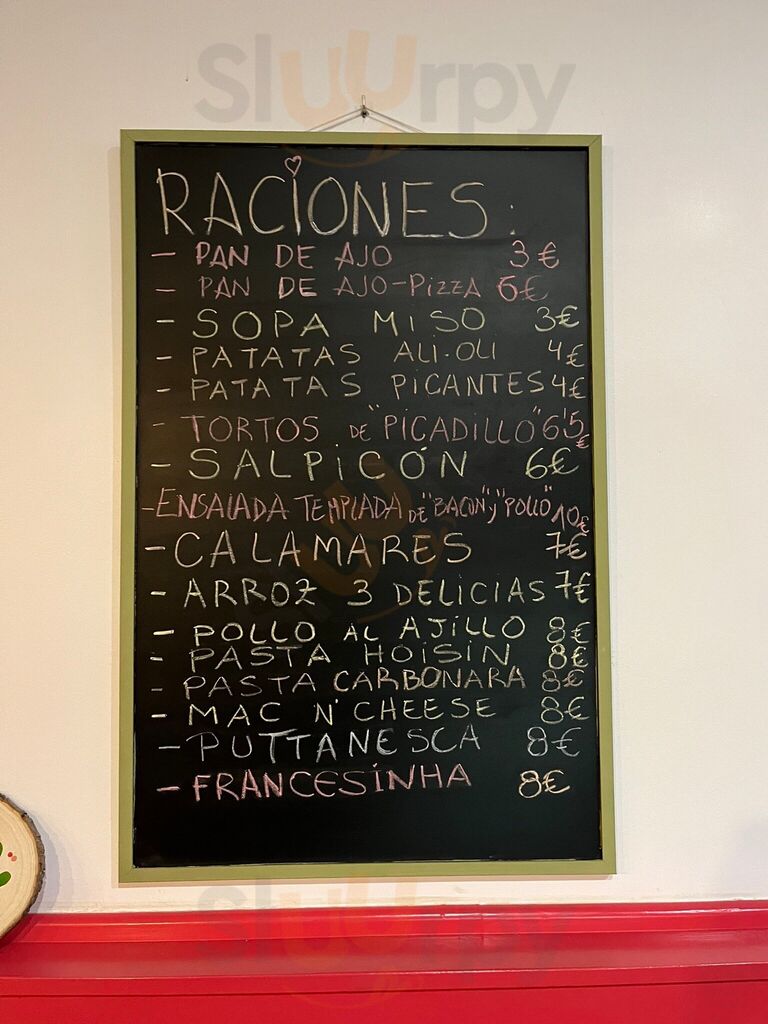 Sluurpy
RACIONES:
- PAN DE AJO 3€
- PAN DE AJO-PIZZA 6€
- SOPA MISO 3€
- PATATAS ALI-OLI 4€
- PATATAS PICANTES 4€
- TORTOS DE "PICADILLO" 6'5€
- SALPICÓN 6€
- ENSALADA TEMPLADA DE "BACON" y "POLLO" 10€
- CALAMARES 7€
- ARROZ 3 DELICIAS 7€
- POLLO AL AJILLO 8€
- PASTA HOISIN 8€
- PASTA CARBONARA 8€
- MAC N' CHEESE 8€
- PUTTANESCA 8€
- FRANCESINHA 8€
Sluurpy